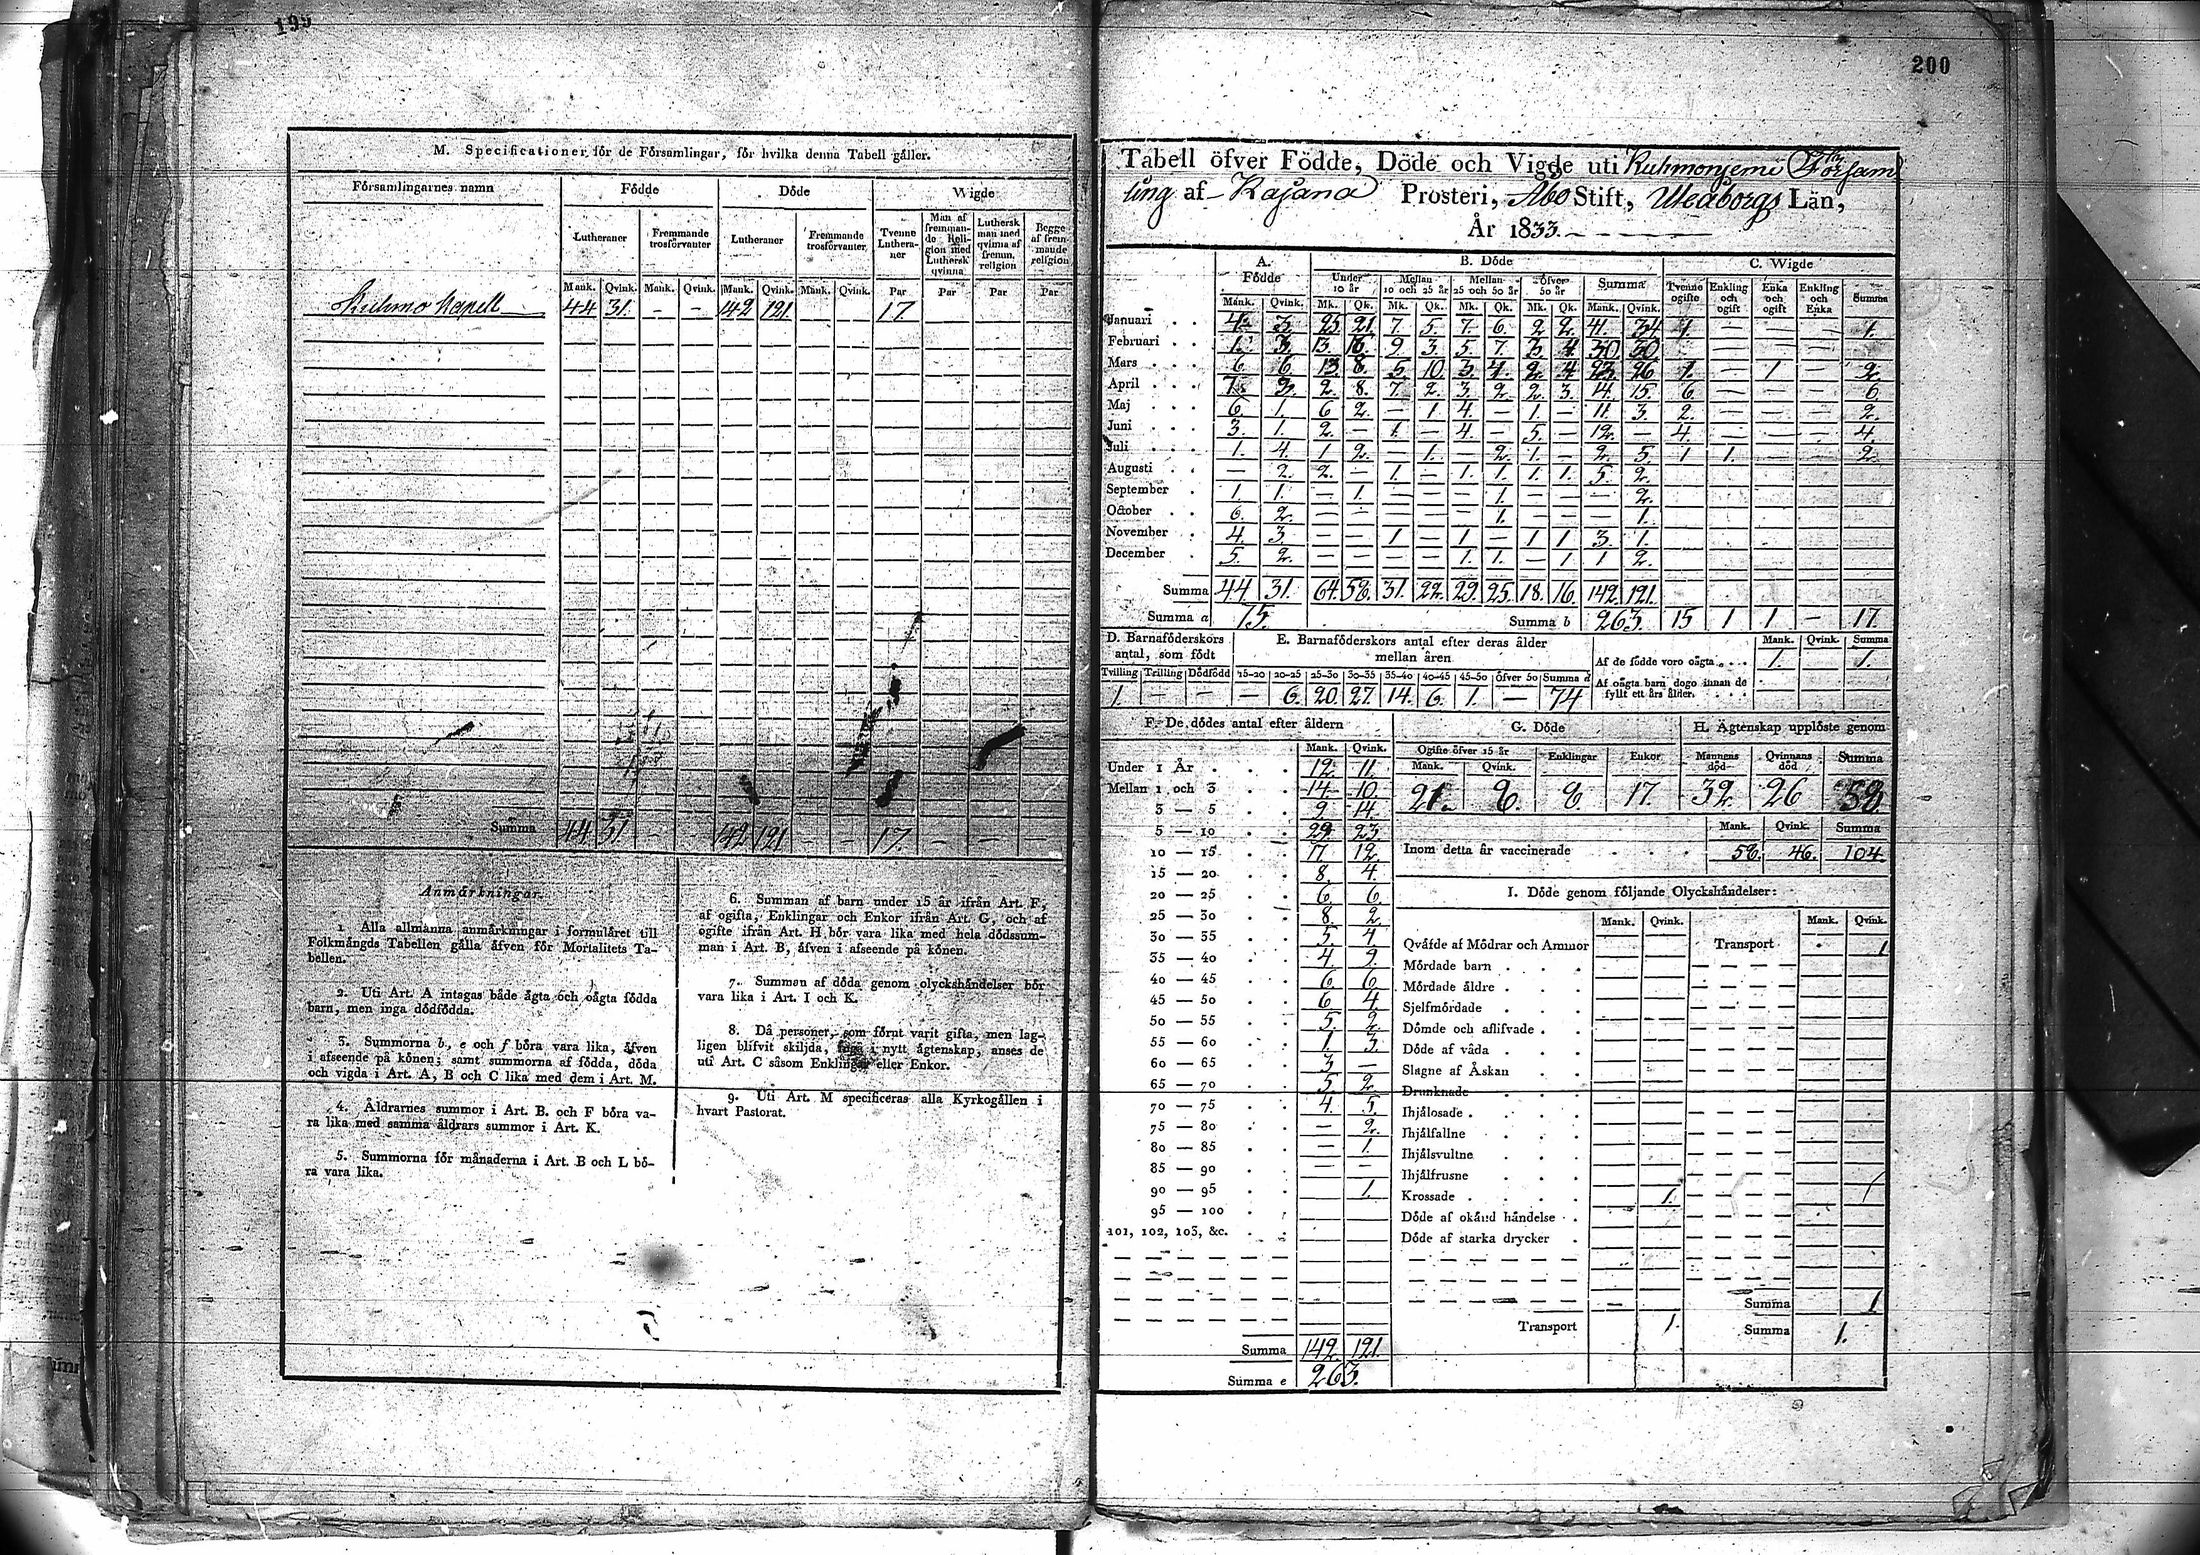 199
M. Specificationer för de Församlingar, för hvilka denna Tabell gäller.
Församlingarnes namn Födde Döde Wigde
Lutheraner Fremmande trosförvanter Lutheraner Fremmande trosförvanter Tvenne Lutheraner Man af fremmande Religion med Luthersk qvinna Luthersk man med qvinna af fremm. religion Begge af fremmande religion
Mank. Qvink. Mank. Qvink. Mank. Qvink. Mank. Qvink. Par Par Par Par
Kuhmo Kapell 44 31. - - 142 121. 17.
Summa 44 31 - - 142 121 - - 17. - -
Anmärkningar.
1. Alla allmänna anmärkningar i formuläret till
Folkmängds Tabellen gälla äfven för Mortalitets Ta-
bellen.
2. Uti Art. A intagas både ägta och oägta födda
barn, men inga dödfödda.
3. Summorna b, e och f böra vara lika, äfven
i afseende på könen; samt summorna af födda, döda
och vigda i Art. A, B och C lika med dem i Art. M.
4. Åldrarnes summor i Art. B. och F böra va-
ra lika med samma åldrars summor i Art. K.
5. Summorna för månaderna i Art. B och L bö-
ra vara lika.
6. Summan af barn under 15 år ifrån Art. F,
af ogifta, Enklingar och Enkor ifrån Art. G, och af
ogifte ifrån Art. H bör vara lika med hela dödssum-
man i Art. B, äfven i afseende på könen.
7. Summan af döda genom olyckshändelser bör
vara lika i Art. I och K.
8. Då personer, som förut varit gifta, men lag-
ligen blifvit skiljda, ingå i nytt ägtenskap, anses de
uti Art. C såsom Enklingar eller Enkor.
9. Uti Art. M specificeras alla Kyrkogällen i
hvart Pastorat.
200
Tabell öfver Födde, Döde och Vigde uti Kuhmoniemi Försam
ling af Kajana Prosteri, Åbo Stift, Uleåborgs Län,
År 1833.
A. Födde B. Döde C. Wigde
Under 10 år Mellan 10 och 25 år Mellan 25 och 50 år Öfver 50 år Summa Tvenne ogifte Enkling och ogift Enka och ogift Enkling och Enka Summa
Mank. Qvink. Mk. Qk. Mk. Qk. Mk. Qk. Mk. Qk. Mank. Qvink.
Januari 4. 3. 25 21. 7. 5. 7. 6. 2 2. 41. 34 1. — — — 1.
Februari 1. 3. 13. 16. 9. 3. 5. 7. 3. 4. 30. 30.
Mars 6. 6. 13. 8. 5. 10. 3. 4. 2. 4 23. 26 1. — 1 — 2.
April 7. 3. 2. 8. 7. 2. 3. 2. 2. 3. 14. 15. 6. — — — 6.
Maj 6. 1. 6 2. — 1 4. — 1. — 11. 3. 2. — — — 2.
Juni 3. 1. 2. — 1. — 4. — 5. — 12. — 4. — — — 4.
Juli 1. 4. 1 2. — 1. — 2. 1. — 2. 5. 1 1. — — 2.
Augusti — 2. 2. — 1. — 1. 1. 1. 1. 5. 2.
September 1. 1. — 1. — — — 1. — — — 2.
October 6. 2. — — — — — 1. — — — 1.
November 4. 3. — — 1 — 1 — 1 1 3. 1.
December 5. 2. — — — — 1. 1. — 1 1 2.
Summa 44 31. 64. 58. 31. 22. 29. 25. 18. 16. 142. 121.
Summa a 75. Summa b 263. 15 1 1 — 17.
D. Barnaföderskors antal, som födt
Tvilling Trilling Dödfödd
1. — —
E. Barnaföderskors antal efter deras ålder mellan åren
15-20 20-25 25-30 30-35 35-40 40-45 45-50 öfver 50 Summa d
— 6. 20. 27. 14. 6. 1. — 74
Mank. Qvink. Summa
Af de födde voro oägta 1. 1.
Af oägta barn dogo innan de
fyllt ett års ålder.
F. De dödes antal efter åldern
Mank. Qvink.
Under 1 År 12. 11.
Mellan 1 och 3 14 10.
3 — 5 9 14.
5 — 10 29 23
10 — 15 17 12.
15 — 20 8. 4
20 — 25 6. 6.
25 — 30 8. 2.
30 — 35 5. 4
35 — 40 4 9.
40 — 45 6 6
45 — 50 6 4.
50 — 55 5. 2.
55 — 60 1. 3.
60 — 65 3 —
65 — 70 5 2.
70 — 75 4. 5.
75 — 80 — 2.
80 — 85 — 1.
85 — 90 — —
90 — 95 1.
95 — 100
101, 102, 103, &c.
Summa 142. 121.
Summa e 263.
G. Döde
Ogifte öfver 15 år Enklingar Enkor
Mank. Qvink.
21. 8. 8 17.
H. Ägtenskap upplöste genom
Mannens död Qvinnans död Summa
32. 26 58.
Mank. Qvink. Summa
Inom detta år vaccinerade 58. 46. 104.
I. Döde genom följande Olyckshändelser:
Mank. Qvink. Mank. Qvink.
Qväfde af Mödrar och Ammor Transport 1
Mördade barn
Mördade äldre
Sjelfmördade
Dömde och aflifvade
Döde af våda
Slagne af Åskan
Drunknade
Ihjälosade
Ihjälfallne
Ihjälsvultne
Ihjälfrusne
Krossade 1.
Döde af okänd händelse
Döde af starka drycker
Summa 1
Transport 1. Summa 1.